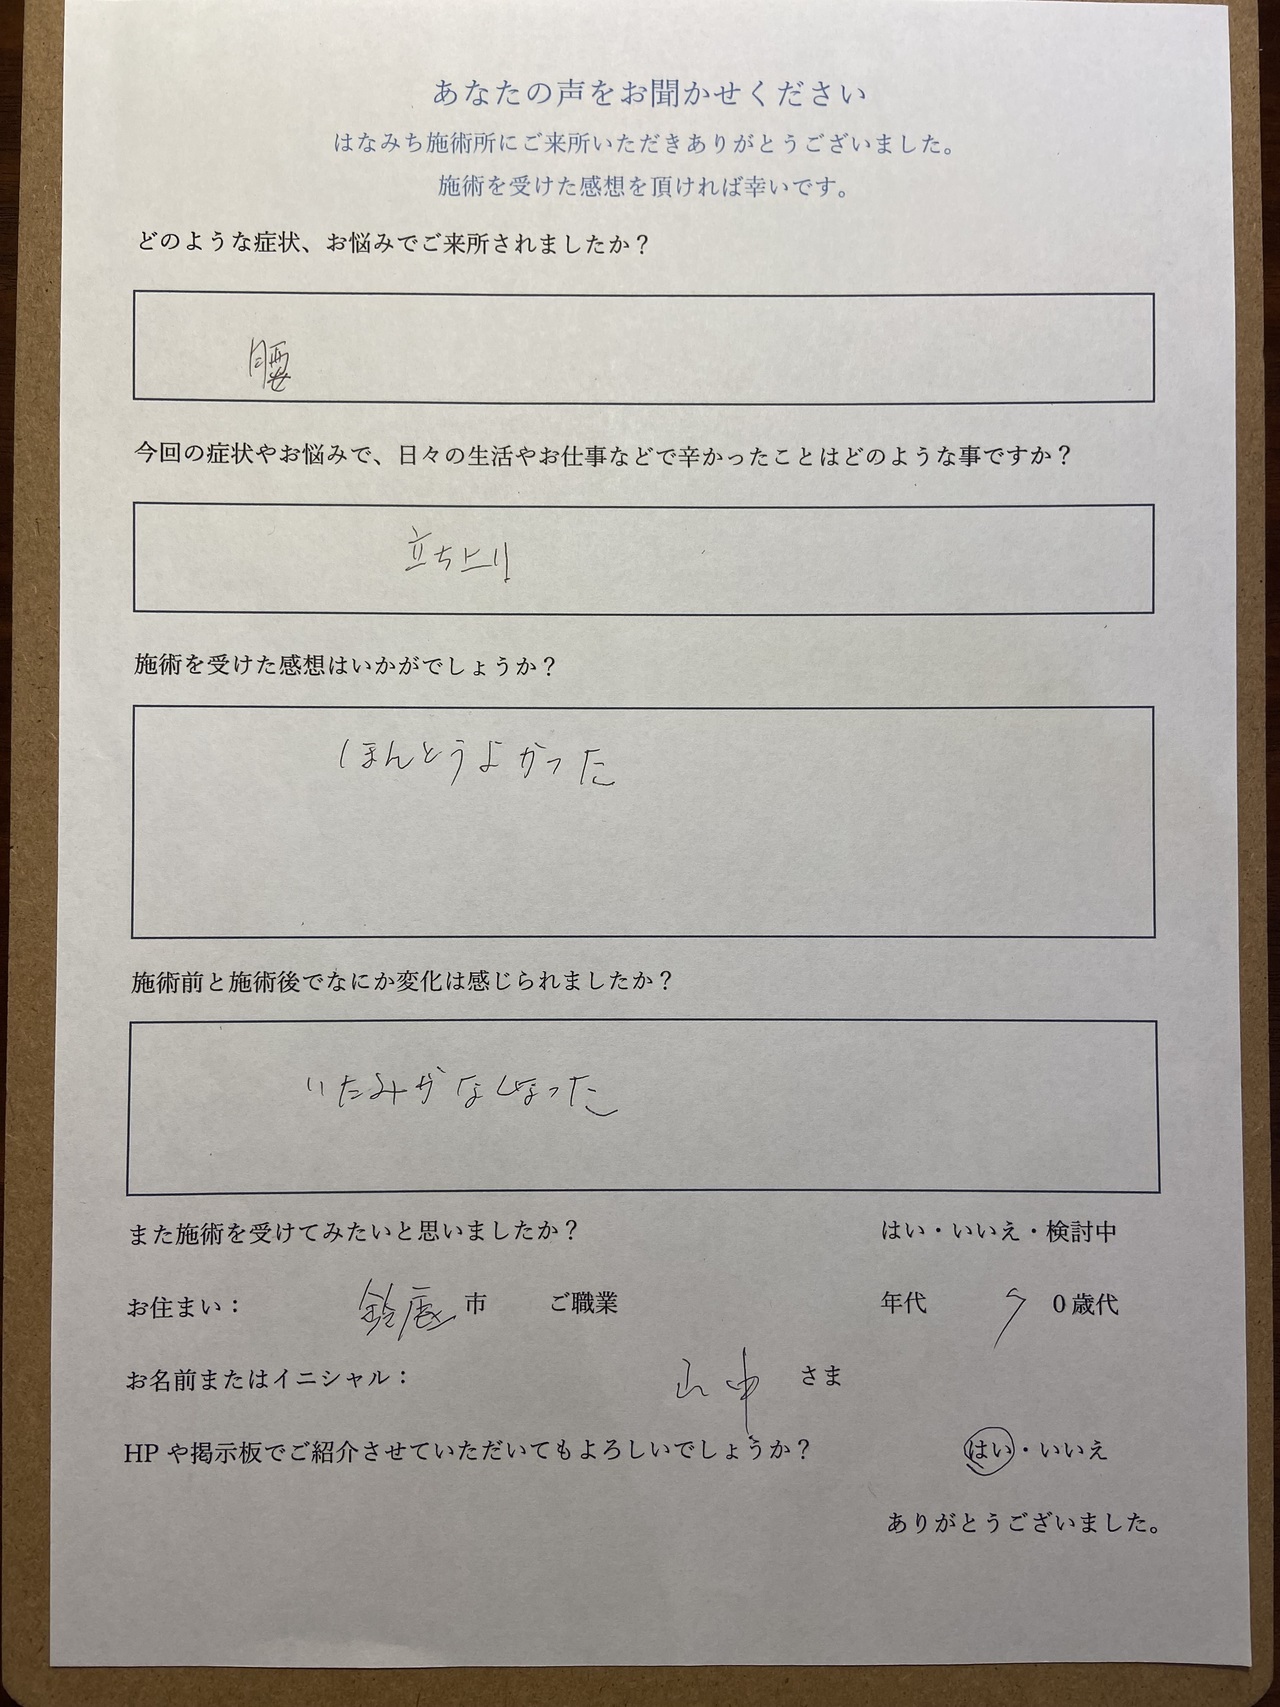 あなたの声をお聞かせください
はなみち施術所にご来所いただきありがとうございました。
施術を受けた感想を頂ければ幸いです。
どのような症状、お悩みでご来所されましたか？
腰
今回の症状やお悩みで、日々の生活やお仕事などで辛かったことはどのような事ですか？
立ち上り
施術を受けた感想はいかがでしょうか？
ほんとうよかった
施術前と施術後でなにか変化は感じられましたか？
いたみがなくなった
また施術を受けてみたいと思いましたか？ はい・いいえ・検討中
お住まい： 鈴鹿 市 ご職業 年代 7 0 歳代
お名前またはイニシャル： 山中 さま
HP や掲示板でご紹介させていただいてもよろしいでしょうか？ はい・いいえ
ありがとうございました。